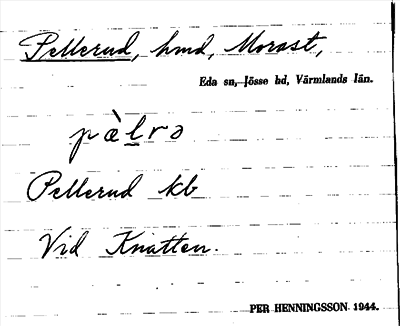 Pellerud, hmd, Morast,
Eda sn, Jösse hd, Värmlands län.
pàl̲rə
Pellerud kb
Vid Knatten.
PER HENNINGSSON 1944.